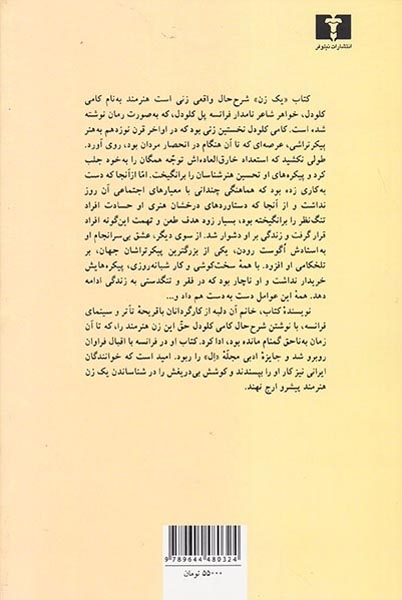 انتشارات نیلوفر
کتاب «یک زن» شرح‌حال واقعی زنی است هنرمند به‌نام کامی
کلودل، خواهر شاعر نامدار فرانسه پل کلودل، که به‌صورت رمان نوشته
شده است. کامی کلودل نخستین زنی بود که در اواخر قرن نوزدهم به‌هنر
پیکرتراشی، عرصه‌ای که تا آن هنگام در انحصار مردان بود، روی آورد.
طولی نکشید که استعداد خارق‌العاده‌اش توجّه همگان را به‌خود جلب
کرد و پیکره‌های او تحسین هنرشناسان را برانگیخت. امّا ازآنجا که دست
به‌کاری زده بود که هماهنگی چندانی با معیارهای اجتماعی آن روز
نداشت و از آنجا که دستاوردهای درخشان هنری او حسادت افراد
تنگ‌نظر را برانگیخته بود، بسیار زود هدف طعن و تهمت این‌گونه افراد
قرار گرفت و زندگی بر او دشوار شد. از سوی دیگر، عشق بی‌سرانجام او
به‌استادش آگوست رودن، یکی از بزرگترین پیکرتراشان جهان، بر
تلخکامی او افزود. با همهٔ سخت‌کوشی و کار شبانه‌روزی، پیکره‌هایش
خریدار نداشت و او ناچار بود که در فقر و تنگدستی به زندگی ادامه
دهد. همهٔ این عوامل دست به‌دست هم داد و...
نویسندهٔ کتاب، خانم آن دلبه از کارگردانان باقریحهٔ تآتر و سینمای
فرانسه، با نوشتن شرح‌حال کامی کلودل حقّ این زن هنرمند را، که تا آن
زمان به‌ناحق گمنام مانده بود، ادا کرد. کتاب او در فرانسه با اقبال فراوان
روبرو شد و جایزهٔ ادبی مجلّهٔ «اِل» را ربود. امید است که خوانندگان
ایرانی نیز کار او را بپسندند و کوشش بی‌دریغش را در شناساندن یک زن
هنرمند پیشرو ارج نهند.
9 789644 480324
۵۵۰۰۰ تومان